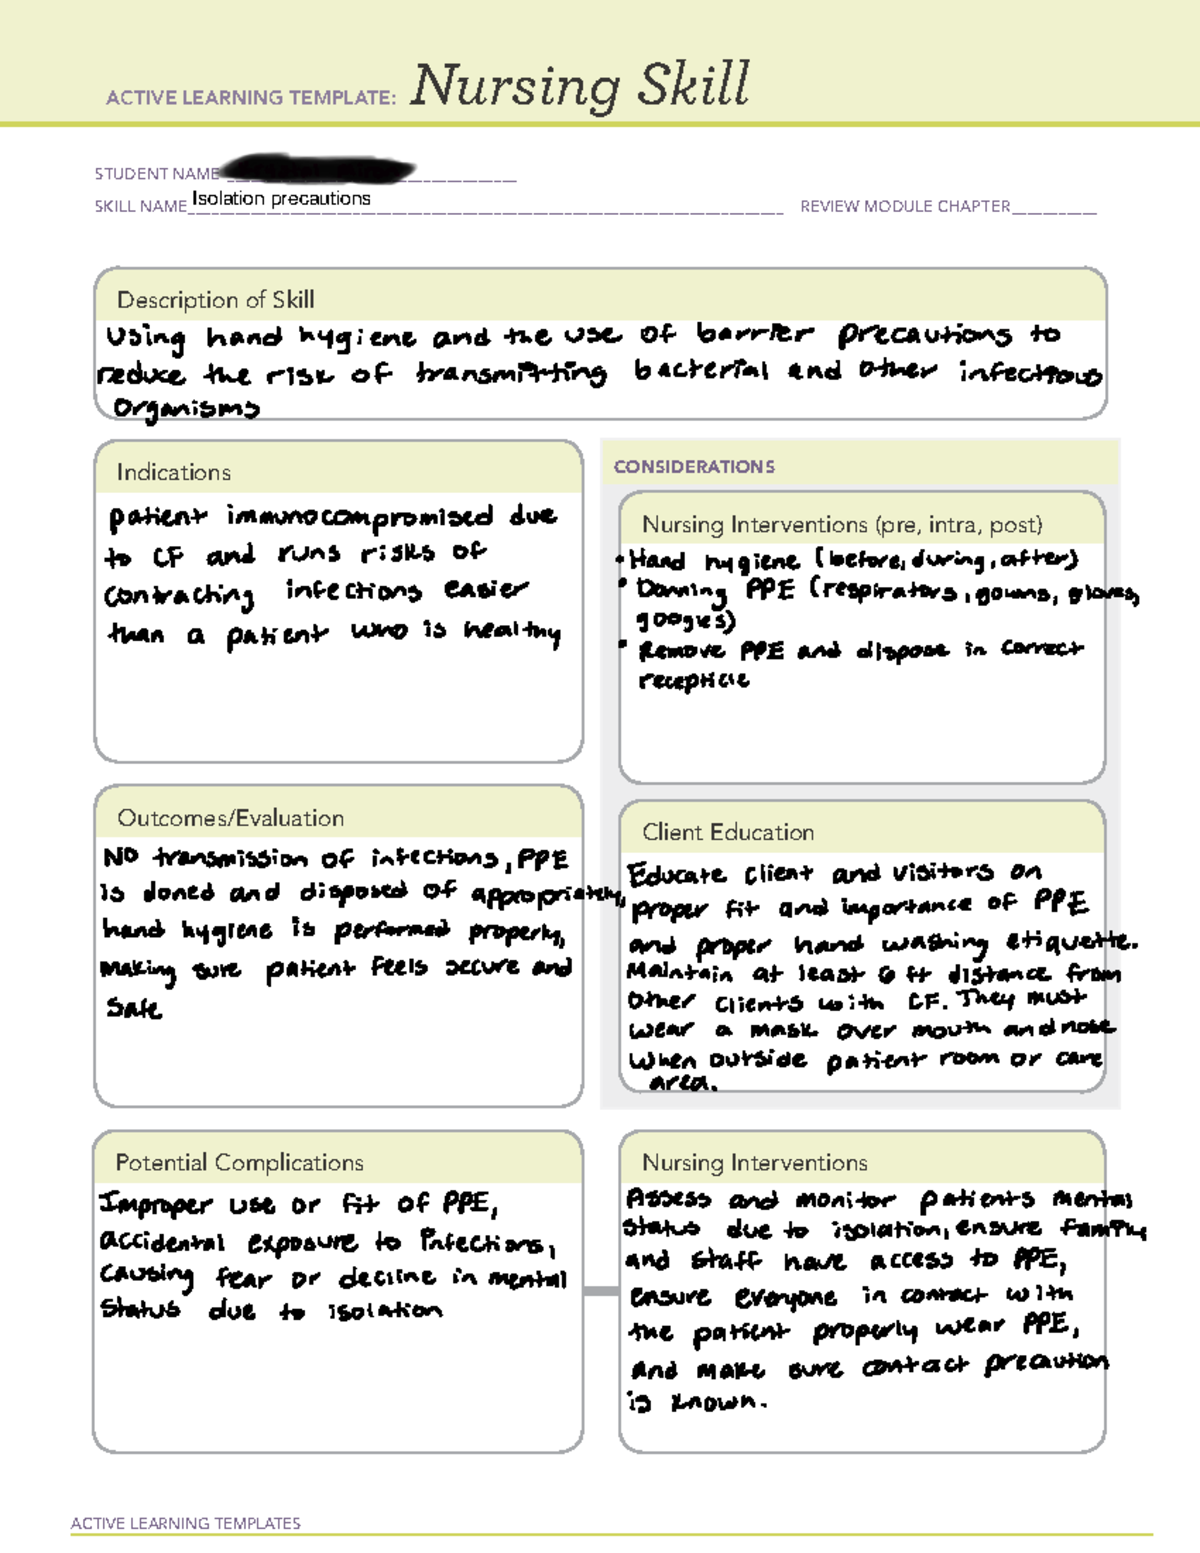 ACTIVE LEARNING TEMPLATE: Nursing Skill
STUDENT NAME
SKILL NAME Isolation precautions REVIEW MODULE CHAPTER
Description of Skill
Using hand hygiene and the use of barrier precautions to
reduce the risk of transmitting bacterial and other infectious
organisms
Indications
patient immunocompromised due
to CF and runs risks of
contracting infections easier
than a patient who is healthy
CONSIDERATIONS
Nursing Interventions (pre, intra, post)
• Hand hygiene (before, during, after)
• Donning PPE (respirators, gowns, gloves,
googles)
• Remove PPE and dispose in correct
recepticle
Outcomes/Evaluation
No transmission of infections, PPE
is doned and disposed of appropriately,
hand hygiene is performed properly,
making sure patient feels secure and
safe
Client Education
Educate client and visitors on
proper fit and importance of PPE
and proper hand washing etiquette.
Maintain at least 6 ft distance from
other clients with CF. They must
wear a mask over mouth and nose
when outside patient room or care
area.
Potential Complications
Improper use or fit of PPE,
accidental exposure to infections,
causing fear or decline in mental
status due to isolation
Nursing Interventions
Assess and monitor patients mental
status due to isolation, ensure family
and staff have access to PPE,
ensure everyone in contact with
the patient properly wear PPE,
and make sure contact precaution
is known.
ACTIVE LEARNING TEMPLATES